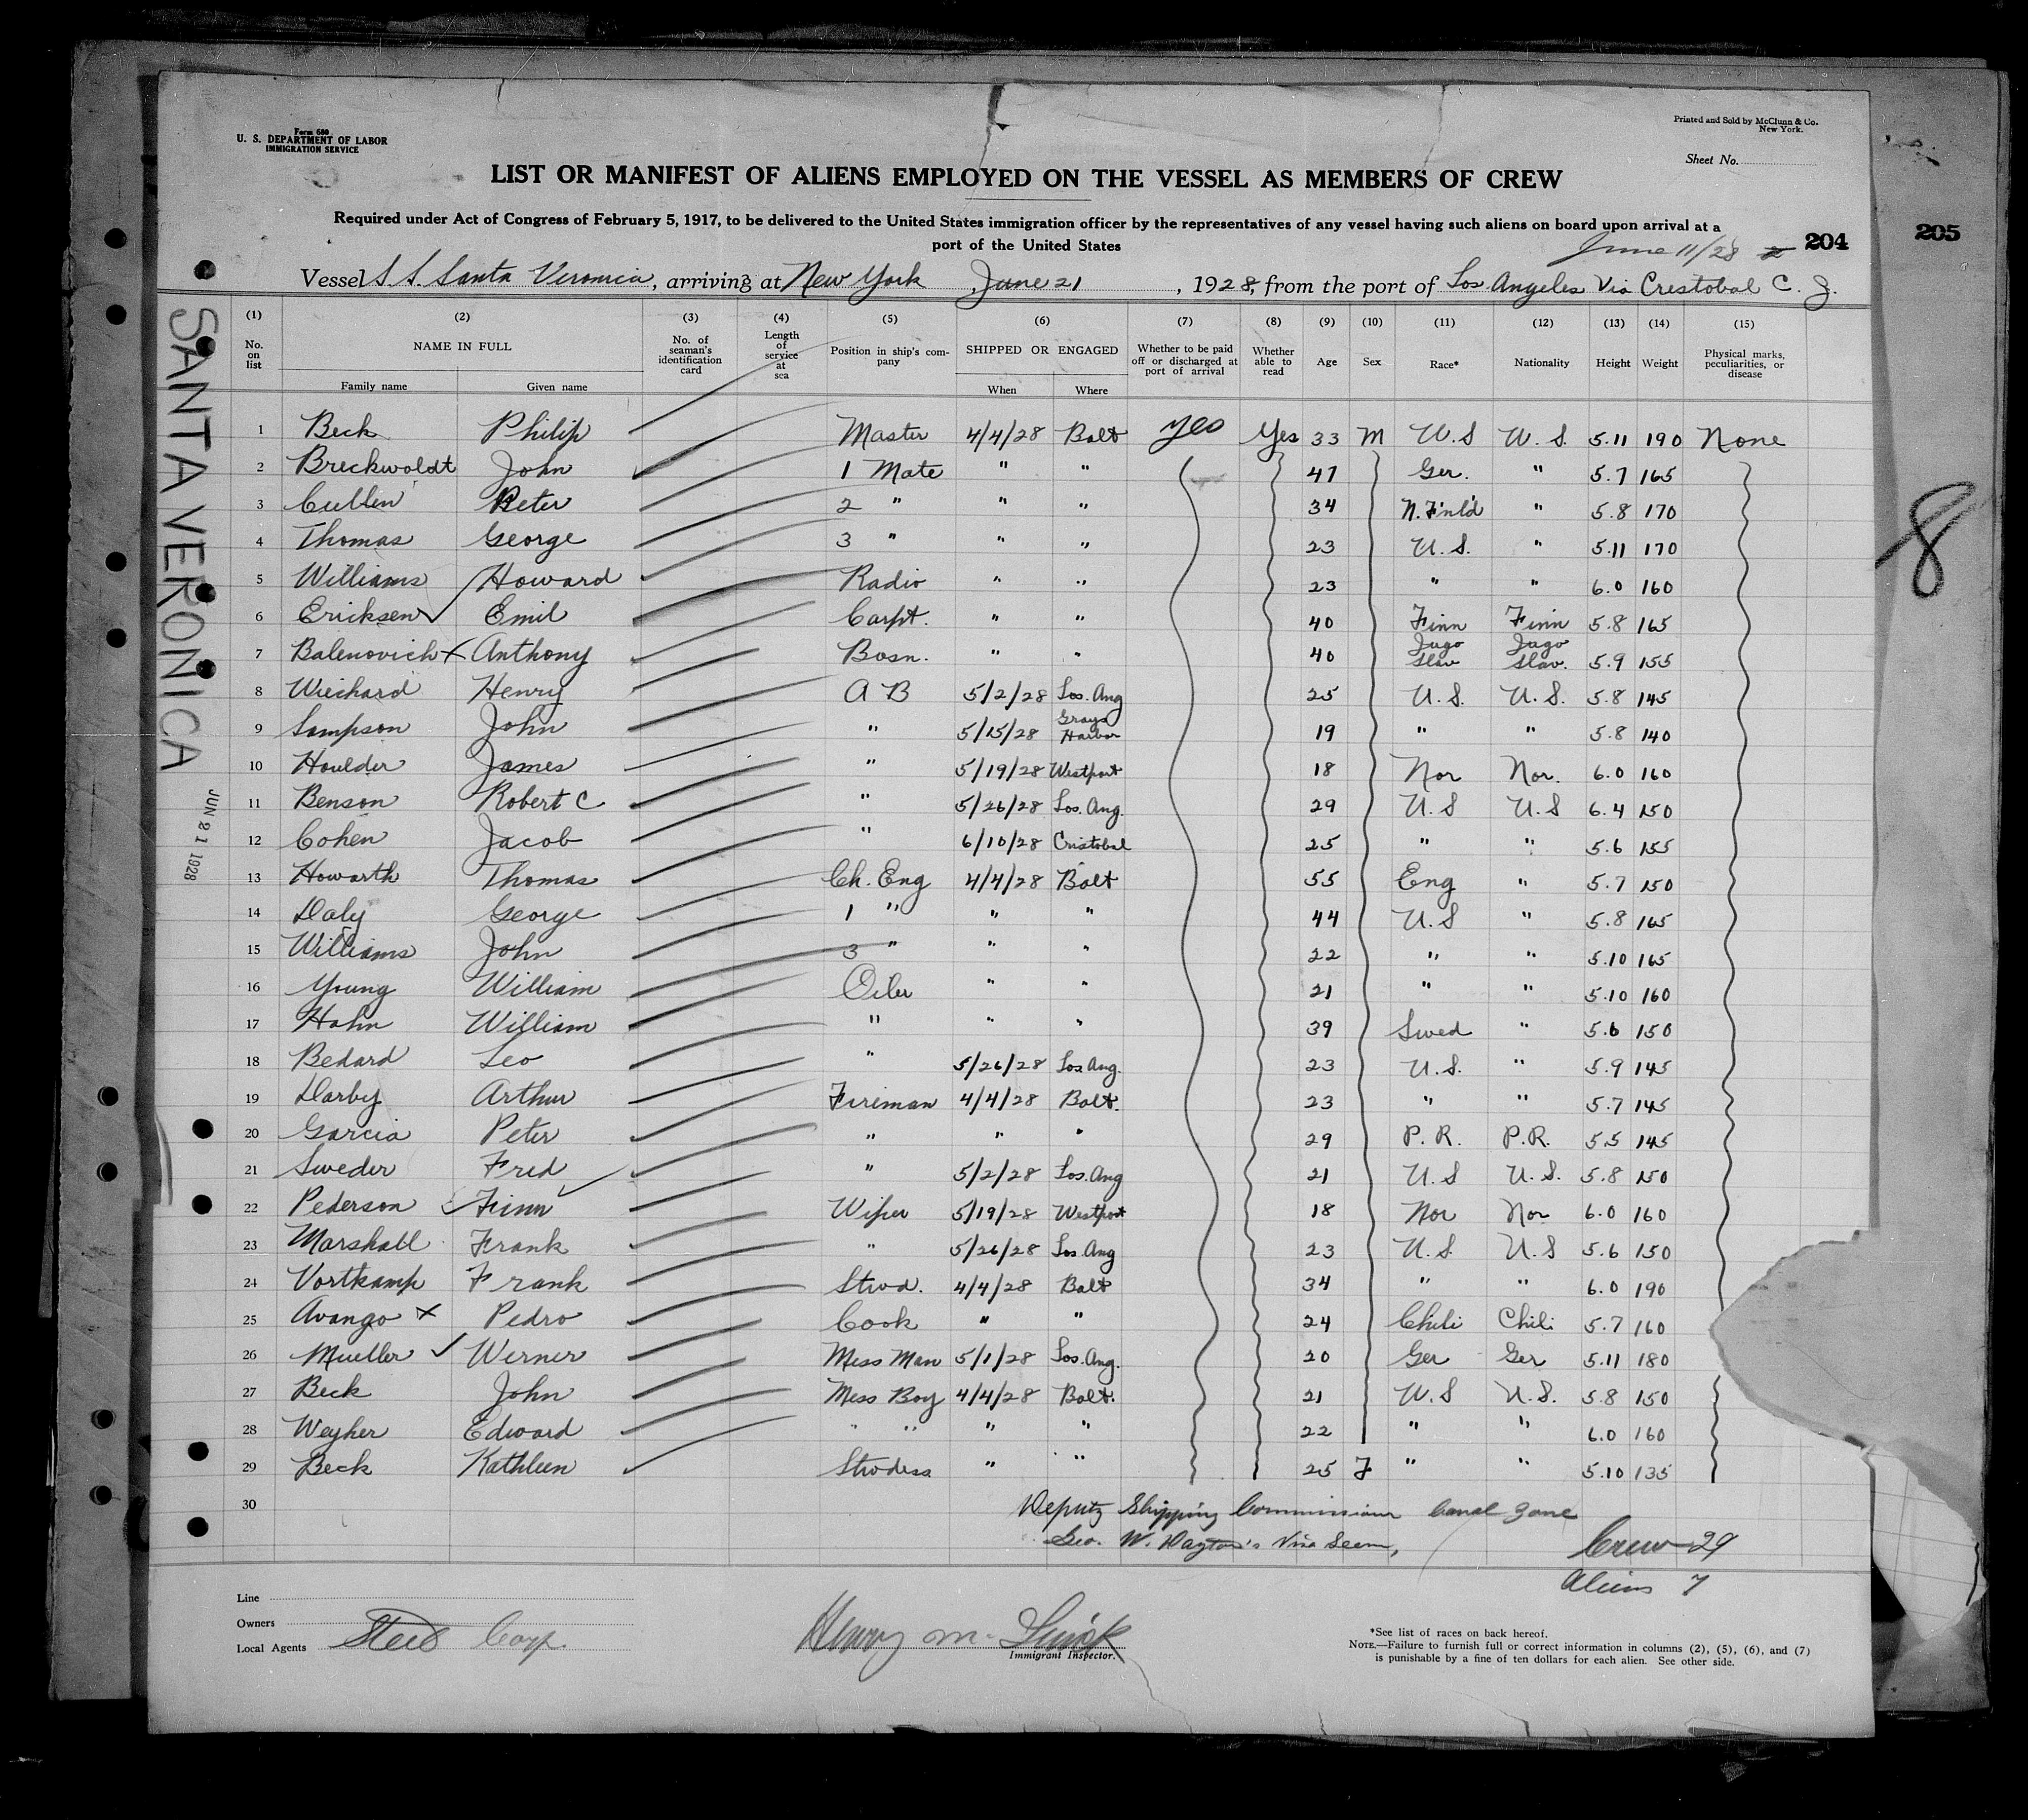 Form 680
U. S. DEPARTMENT OF LABOR
IMMIGRATION SERVICE
Printed and Sold by McClunn & Co.
New York.
Sheet No.
LIST OR MANIFEST OF ALIENS EMPLOYED ON THE VESSEL AS MEMBERS OF CREW
Required under Act of Congress of February 5, 1917, to be delivered to the United States immigration officer by the representatives of any vessel having such aliens on board upon arrival at a
port of the United States
June 11/28 204 205
Vessel S.S. Santa Veronica, arriving at New York June 21, 1928, from the port of Los Angeles Via Crestobal C. Z.
(1) (2) (3) (4) (5) (6) (7) (8) (9) (10) (11) (12) (13) (14) (15)
No. on list NAME IN FULL Family name Given name No. of seaman's identification card Length of service at sea Position in ship's company SHIPPED OR ENGAGED When Where Whether to be paid off or discharged at port of arrival Whether able to read Age Sex Race* Nationality Height Weight Physical marks, peculiarities, or disease
1 Beck Philip Master 4/4/28 Balt yes Yes 33 M U.S U.S. 5.11 190 None
2 Breckwoldt John 1 Mate " " 47 Ger. " 5.7 165
3 Cullen Peter 2 " " " 34 N.F'nl'd " 5.8 170
4 Thomas George 3 " " " 23 U.S. " 5.11 170
5 Williams Howard Radio " " 23 " " 6.0 160
6 Ericksen Emil Carpt. " " 40 Finn Finn 5.8 165
7 Balenovich x Anthony Bosn. " " 40 Jugo Slav Jugo Slav. 5.9 155
8 Wiechard Henry A B 5/2/28 Los. Ang 25 U.S. U.S. 5.8 145
9 Sampson John " 5/15/28 Grays Harbor 19 " " 5.8 140
10 Houlder James " 5/19/28 Westport 18 Nor Nor. 6.0 160
11 Benson Robert C " 5/26/28 Los. Ang. 29 U.S U.S 6.4 150
12 Cohen Jacob " 6/10/28 Cristobal 25 " " 5.6 155
13 Howarth Thomas Ch. Eng 4/4/28 Balt 55 Eng " 5.7 150
14 Daly George 1 " " " 44 U.S " 5.8 165
15 Williams John 3 " " " 22 " " 5.10 165
16 Young William Oiler " " 21 " " 5.10 160
17 Hahn William " " " 39 Swed " 5.6 150
18 Bedard Leo " 5/26/28 Los Ang. 23 U.S. " 5.9 145
19 Darby Arthur Fireman 4/4/28 Balt. 23 " " 5.7 145
20 Garcia Peter " " " 29 P.R. P.R. 5.5 145
21 Sweder Fred " 5/2/28 Los. Ang 21 U.S U.S. 5.8 150
22 Pederson Finn Wiper 5/19/28 Westport 18 Nor Nor 6.0 160
23 Marshall Frank " 5/26/28 Los. Ang 23 U.S. U.S 5.6 150
24 Vortkamp Frank Stwd. 4/4/28 Balt 34 " " 6.0 190
25 Avango x Pedro Cook " " 24 Chili Chili 5.7 160
26 Mueller Werner Mess Man 5/1/28 Los. Ang. 20 Ger Ger 5.11 180
27 Beck John Mess Boy 4/4/28 Balt. 21 U.S U.S. 5.8 150
28 Weyher Edward " " " " 22 " " 6.0 160
29 Beck Kathleen Stwdess " " 25 F " " 5.10 135
30
Deputy Shipping Commissioner Canal Zone
Geo. W. Dayton's Visa Seen,
Crew 29
Aliens 7
Line
Owners
Local Agents Steel Corp.
Henry M.
Immigrant Inspector.
*See list of races on back hereof.
NOTE.—Failure to furnish full or correct information in columns (2), (5), (6), and (7)
is punishable by a fine of ten dollars for each alien. See other side.
SANTA VERONICA
JUN 21 1928
8